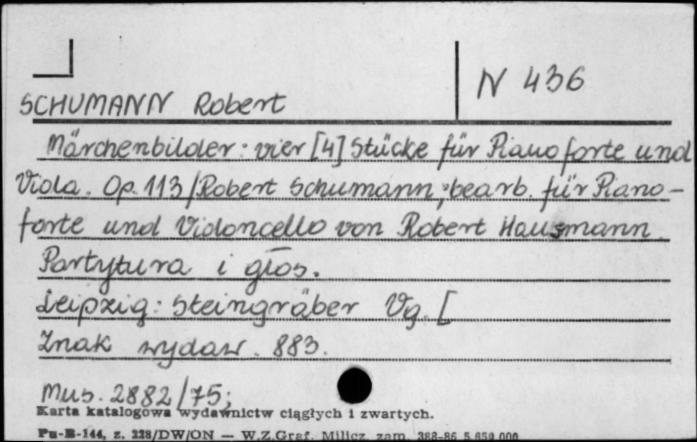 N 436
SCHUMANN Robert
Märchenbilder : vier [4] Stücke für Pianoforte und
Viola. Op. 113 / Robert Schumann ; bearb. für Piano-
forte und Violoncello von Robert Hausmann
Partytura i głos.
Leipzig : Steingräber Vg. [
Znak wydaw. 883.
Mus. 2882/75;
Karta katalogowa wydawnictw ciągłych i zwartych.
Pu-B-144, z. 228/DW/ON — W.Z.Graf. Milicz, zam. 388-86 5.650.000